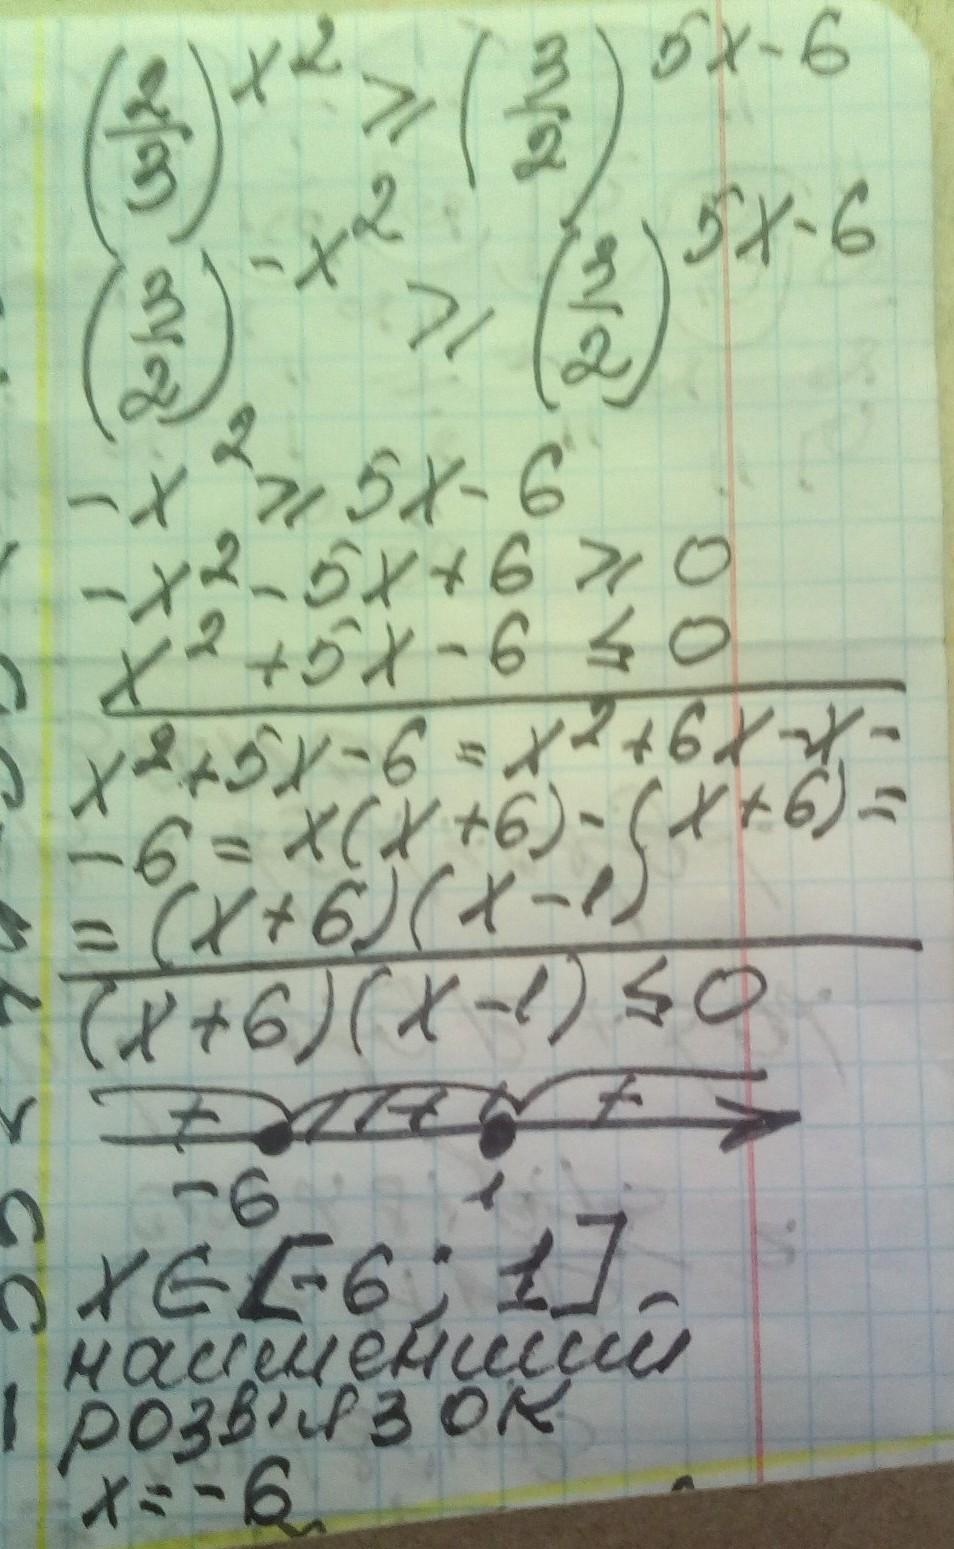 (2/3)^x² ⩾ (3/2)^5x-6
(3/2)^-x² ⩾ (3/2)^5x-6
-x² ⩾ 5x-6
-x²-5x+6 ⩾ 0
x²+5x-6 ⩽ 0
x²+5x-6 = x²+6x-x-
-6 = x(x+6)-(x+6) =
= (x+6)(x-1)
(x+6)(x-1) ⩽ 0
+ + +
-6 1
x∈[-6; 1]
найменший
розв'язок
x=-6